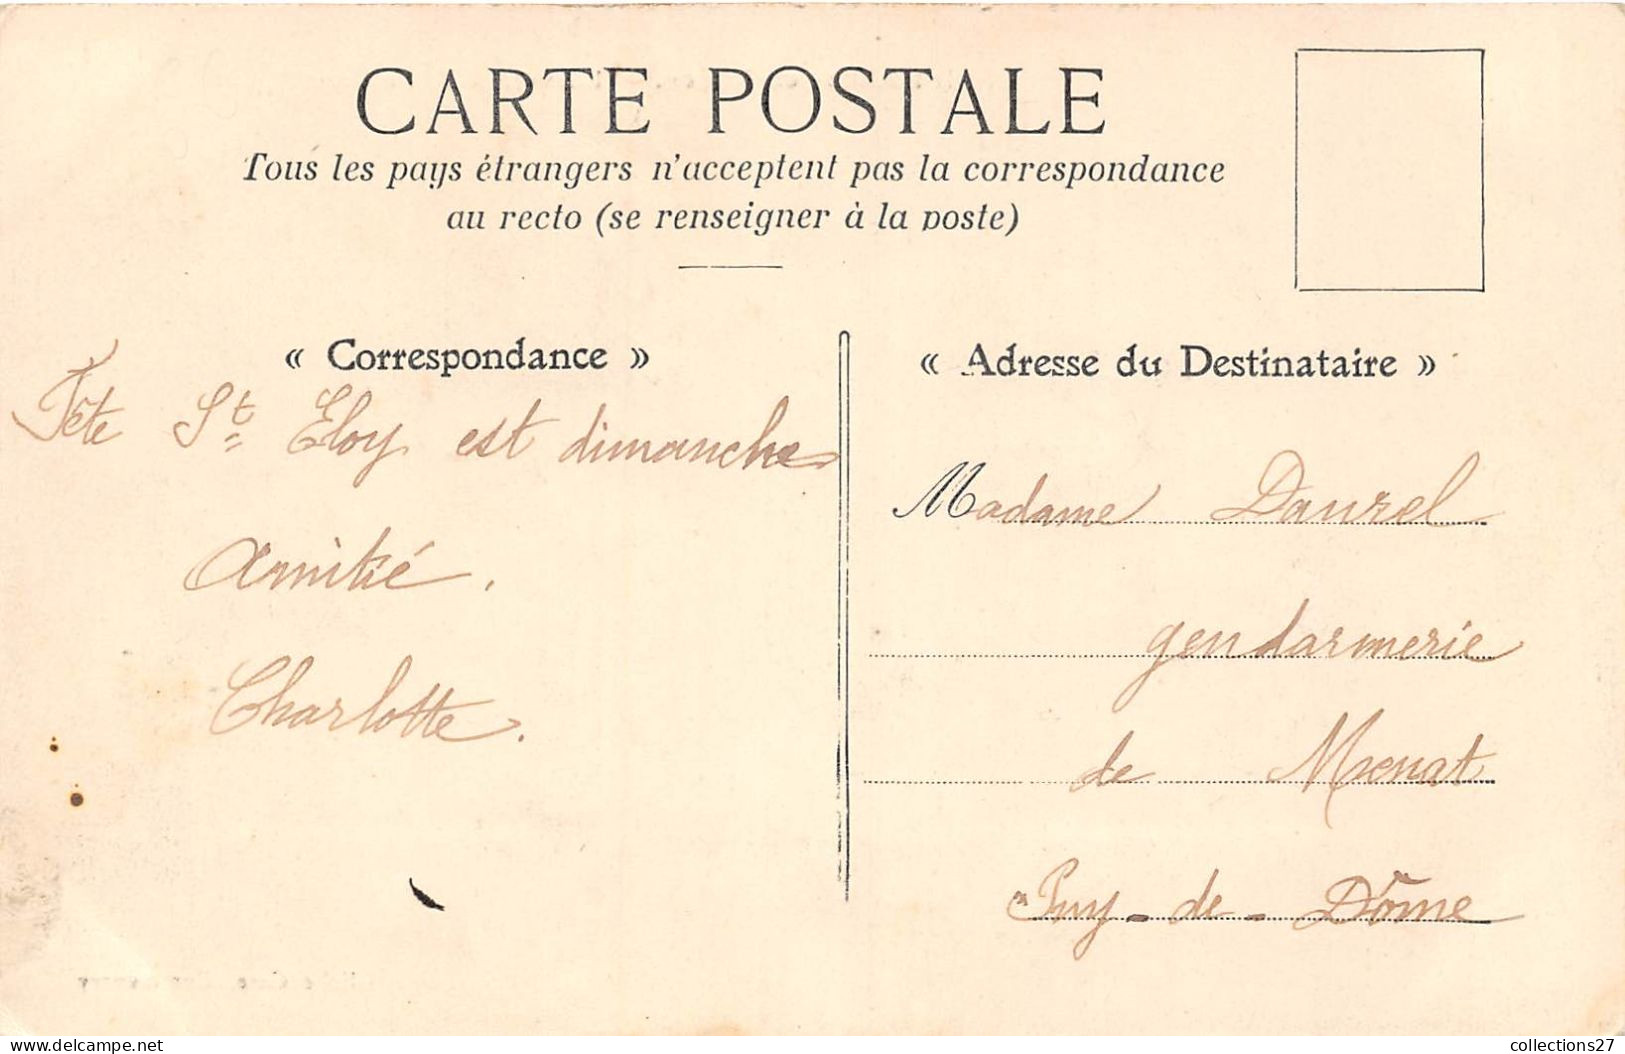 CARTE POSTALE
Tous les pays étrangers n'acceptent pas la correspondance
au recto (se renseigner à la poste)
« Correspondance »
Fête St Eloy est dimanche
Amitié.
Charlotte.
« Adresse du Destinataire »
Madame Daurel
gendarmerie
de Menat
Puy-de-Dôme
collections27